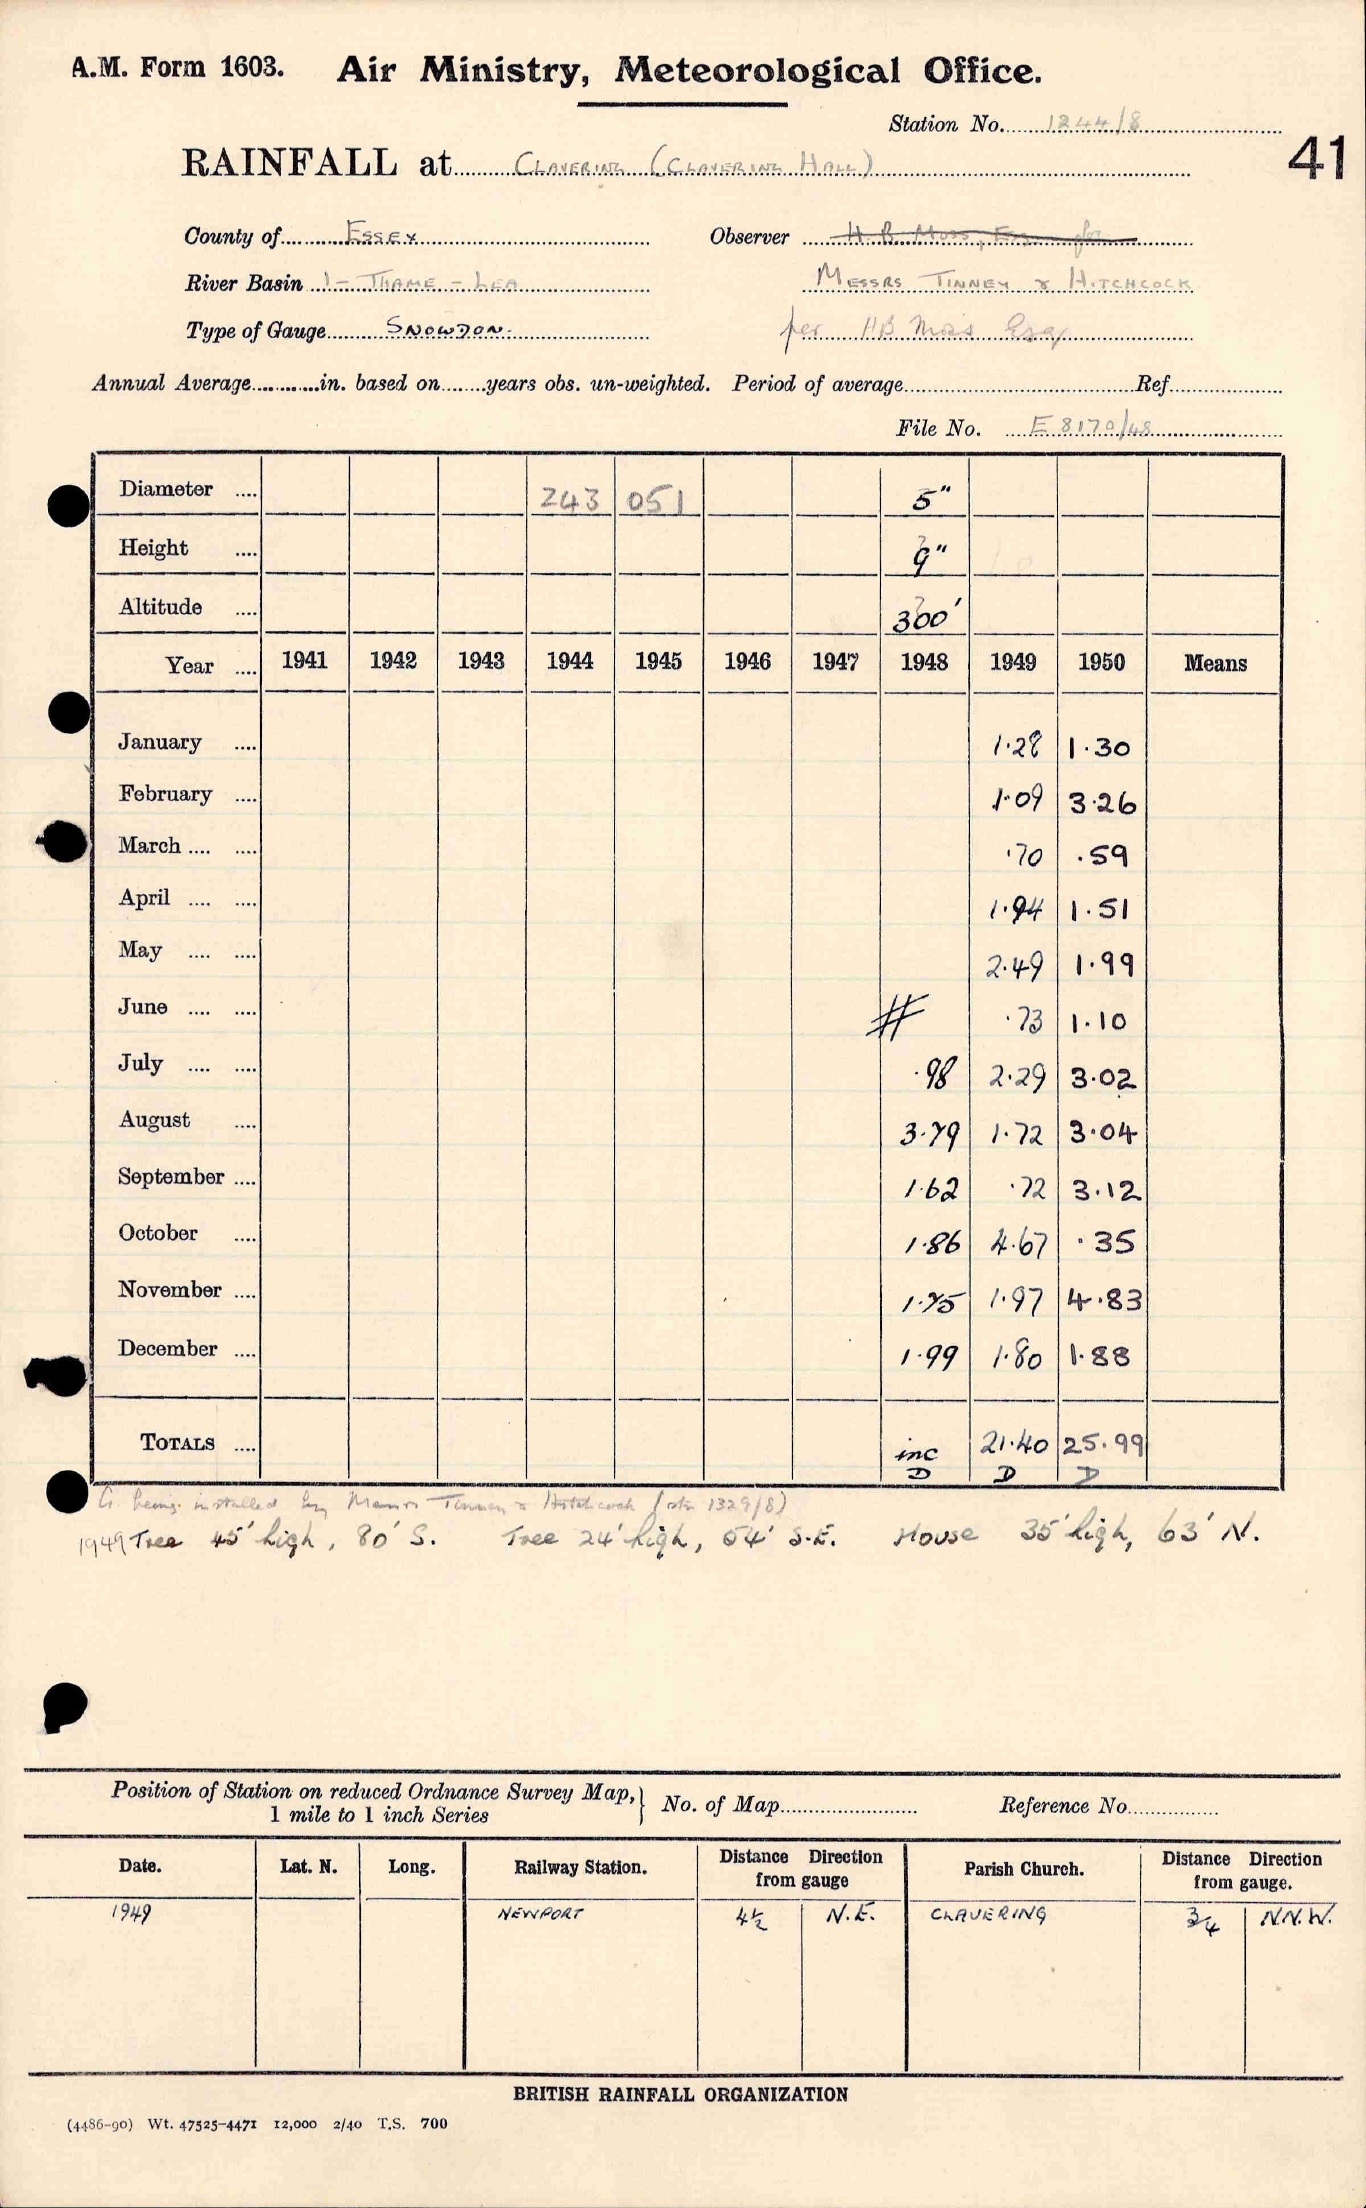 A.M. Form 1603. Air Ministry, Meteorological Office.
Station No. 1244/8
41
RAINFALL at CLAVERING (CLAVERING HALL)
County of ESSEX Observer H B Moss, Esq for
River Basin 1 - THAME - LEA MESSRS TINNEY & HITCHCOCK
Type of Gauge SNOWDON. per HB Moss Esq
Annual Average............in. based on........years obs. un-weighted. Period of average............Ref............
File No. E 8170/48
Diameter .... 243 051 5"
Height .... 9"
Altitude .... 300'
Year .... 1941 1942 1943 1944 1945 1946 1947 1948 1949 1950 Means
January .... 1.28 1.30
February .... 1.09 3.26
March .... .... .70 .59
April .... .... 1.94 1.51
May .... .... 2.49 1.99
June .... .... # .73 1.10
July .... .... .98 2.29 3.02
August .... 3.79 1.72 3.04
September .... 1.62 .72 3.12
October .... 1.86 4.67 .35
November .... 1.75 1.97 4.83
December .... 1.99 1.80 1.88
TOTALS .... inc 21.40 25.99
D D D
G. being installed by Messrs Tinney & Hitchcock (stn 1329/8)
1949 Tree 45' high, 80' S. Tree 24' high, 54' S.E. House 35' high, 63' N.
Position of Station on reduced Ordnance Survey Map, } No. of Map............ Reference No............
1 mile to 1 inch Series
Date. Lat. N. Long. Railway Station. Distance Direction from gauge Parish Church. Distance Direction from gauge.
1949 NEWPORT 4½ N.E. CLAVERING ¾ N.N.W.
BRITISH RAINFALL ORGANIZATION
(4486-90) Wt. 47525-4471 12,000 2/40 T.S. 700